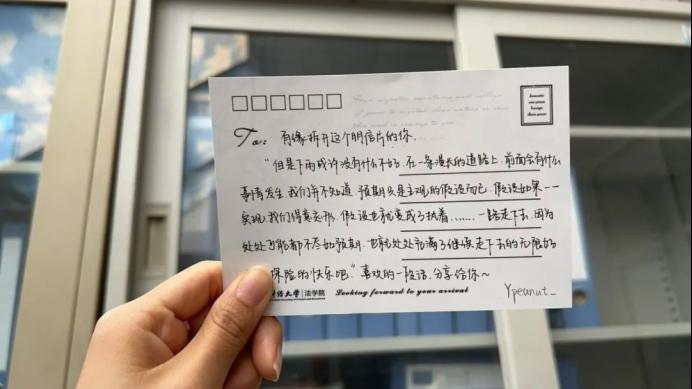 To: 有缘拆开这个明信片的你.
"但是下雨或许没有什么不好. 在一条漫长的道路上, 前面会有什么
事情发生, 我们并不知道. 预期只是主观的假设而已, 假设如果一一
实现, 我们得意忘形, 假设也就变成了执着, ……一路走下去, 因为
处处可能都不尽如预期, 也就处处充满了继续走下去的无限好
探险的快乐吧." 喜欢的一段话, 分享给你~
大学 法学院
Looking forward to your arrival
Ypeanut_